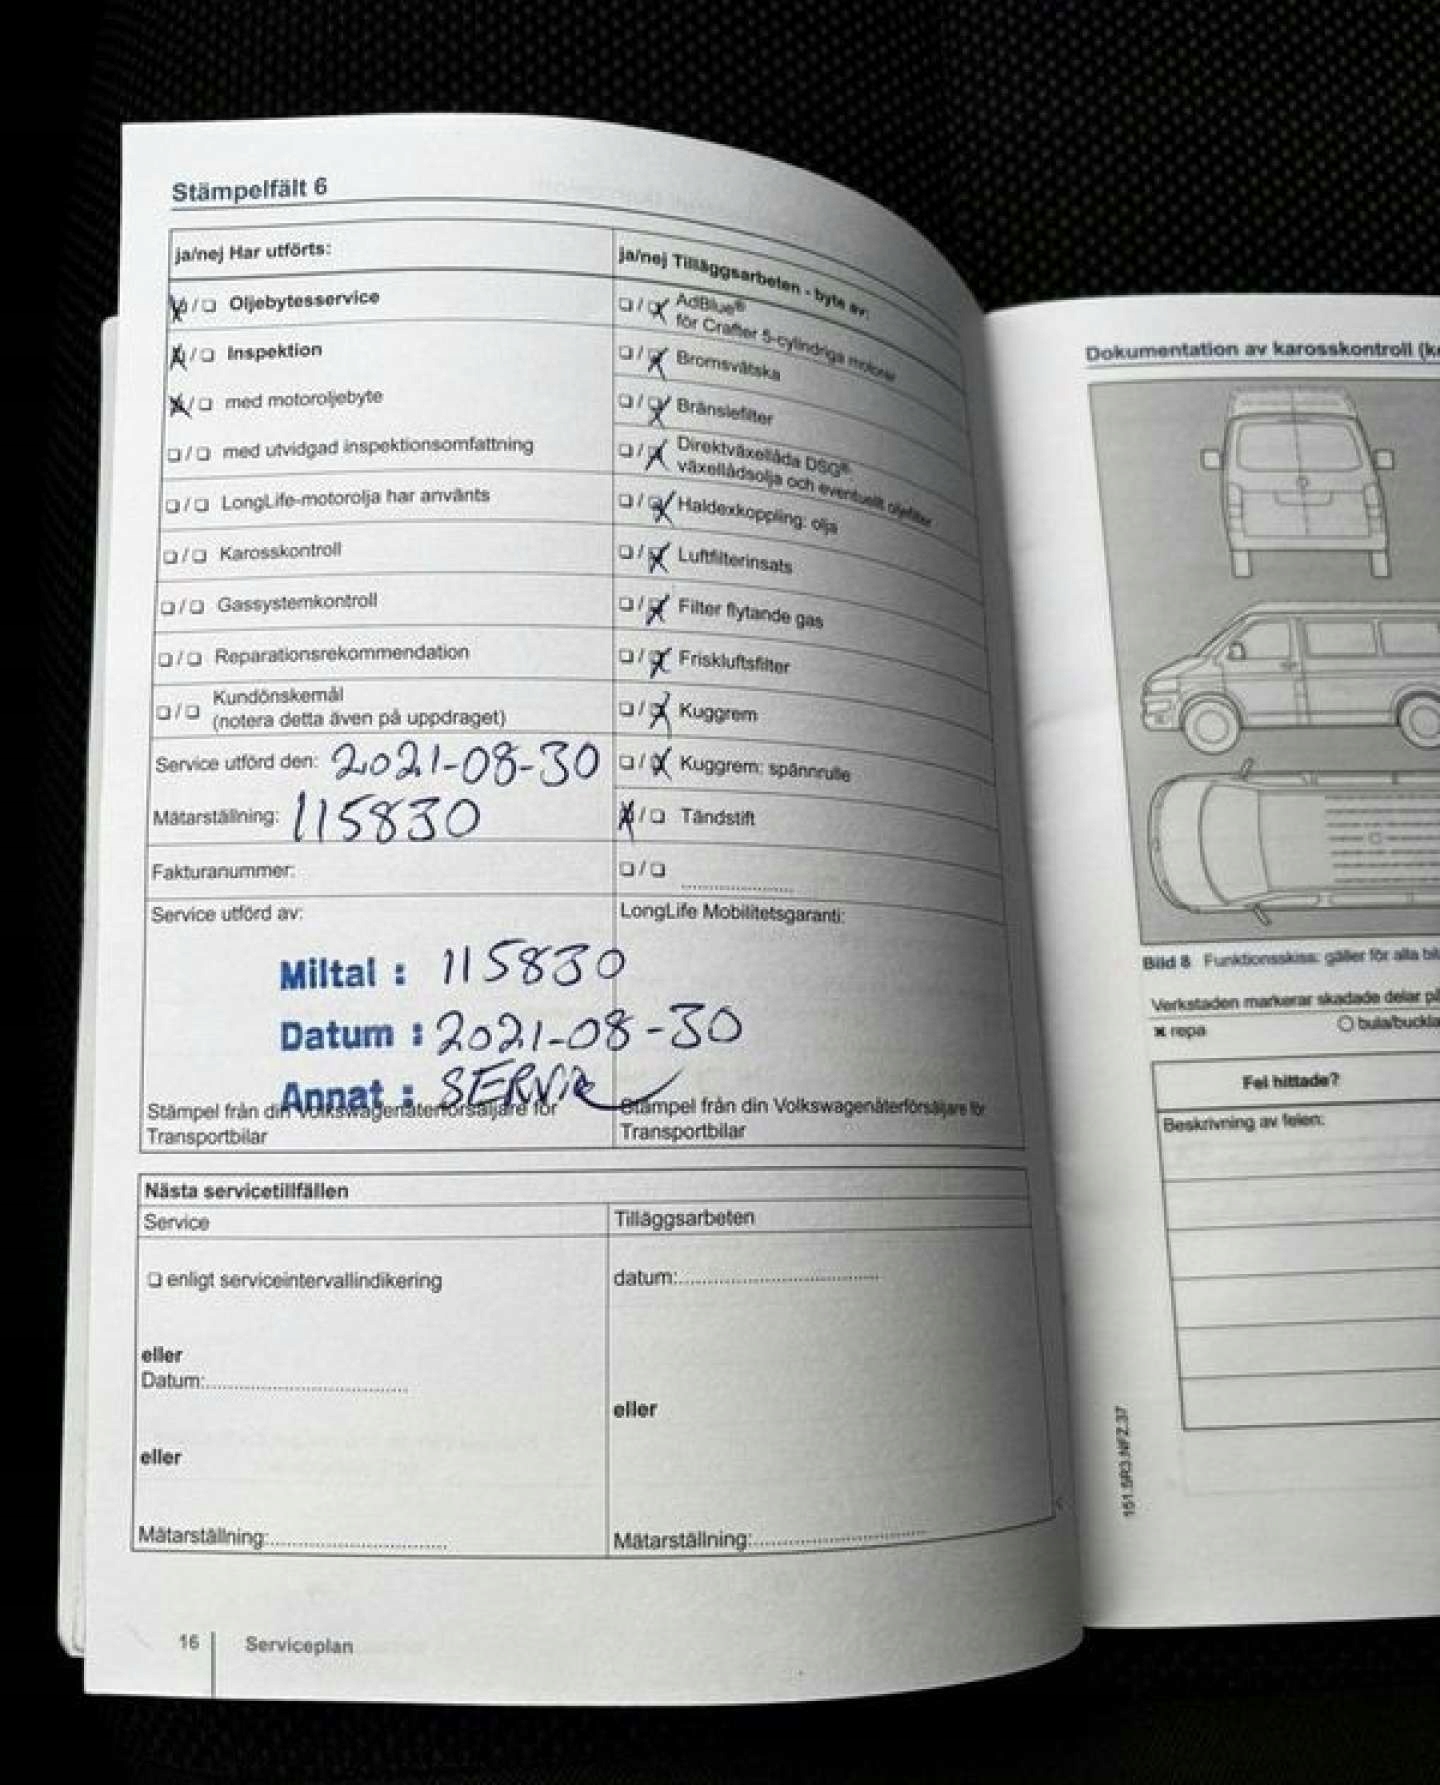 Stämpelfält 6
ja/nej Har utförts:
☒/☐ Oljebytesservice
☒/☐ Inspektion
☒/☐ med motoroljebyte
☐/☐ med utvidgad inspektionsomfattning
☐/☐ LongLife-motorolja har använts
☐/☐ Karosskontroll
☐/☐ Gassystemkontroll
☐/☐ Reparationsrekommendation
☐/☐ Kundönskemål
(notera detta även på uppdraget)
Service utförd den: 2021-08-30
Mätarställning: 115830
Fakturanummer:
Service utförd av:
Miltal : 115830
Datum : 2021-08-30
Annat : SERVICE
Stämpel från din Volkswagenåterförsäljare för
Transportbilar
ja/nej Tilläggsarbeten - byte av:
☐/☒ AdBlue®
för Crafter 5-cylindriga motorer
☐/☒ Bromsvätska
☐/☒ Bränslefilter
☐/☒ Direktväxellåda DSG®
växellådsolja och eventuellt oljefilter
☐/☒ Haldexkoppling: olja
☐/☒ Luftfilterinsats
☐/☒ Filter flytande gas
☐/☒ Friskluftsfilter
☐/☒ Kuggrem
☐/☒ Kuggrem: spännrulle
☒/☐ Tändstift
☐/☐ ....................
LongLife Mobilitetsgaranti:
Stämpel från din Volkswagenåterförsäljare för
Transportbilar
Nästa servicetillfällen
Service
☐ enligt serviceintervallindikering
eller
Datum:....................
eller
Mätarställning:....................
Tilläggsarbeten
datum:....................
eller
Mätarställning:....................
16 Serviceplan
Dokumentation av karosskontroll
Bild 8 Funktionsskiss: gäller för alla
Verkstaden markerar skadade delar
✖ repa ○ bula/buckla
Fel hittade?
Beskrivning av felen:
151.5R3.NFZ.37